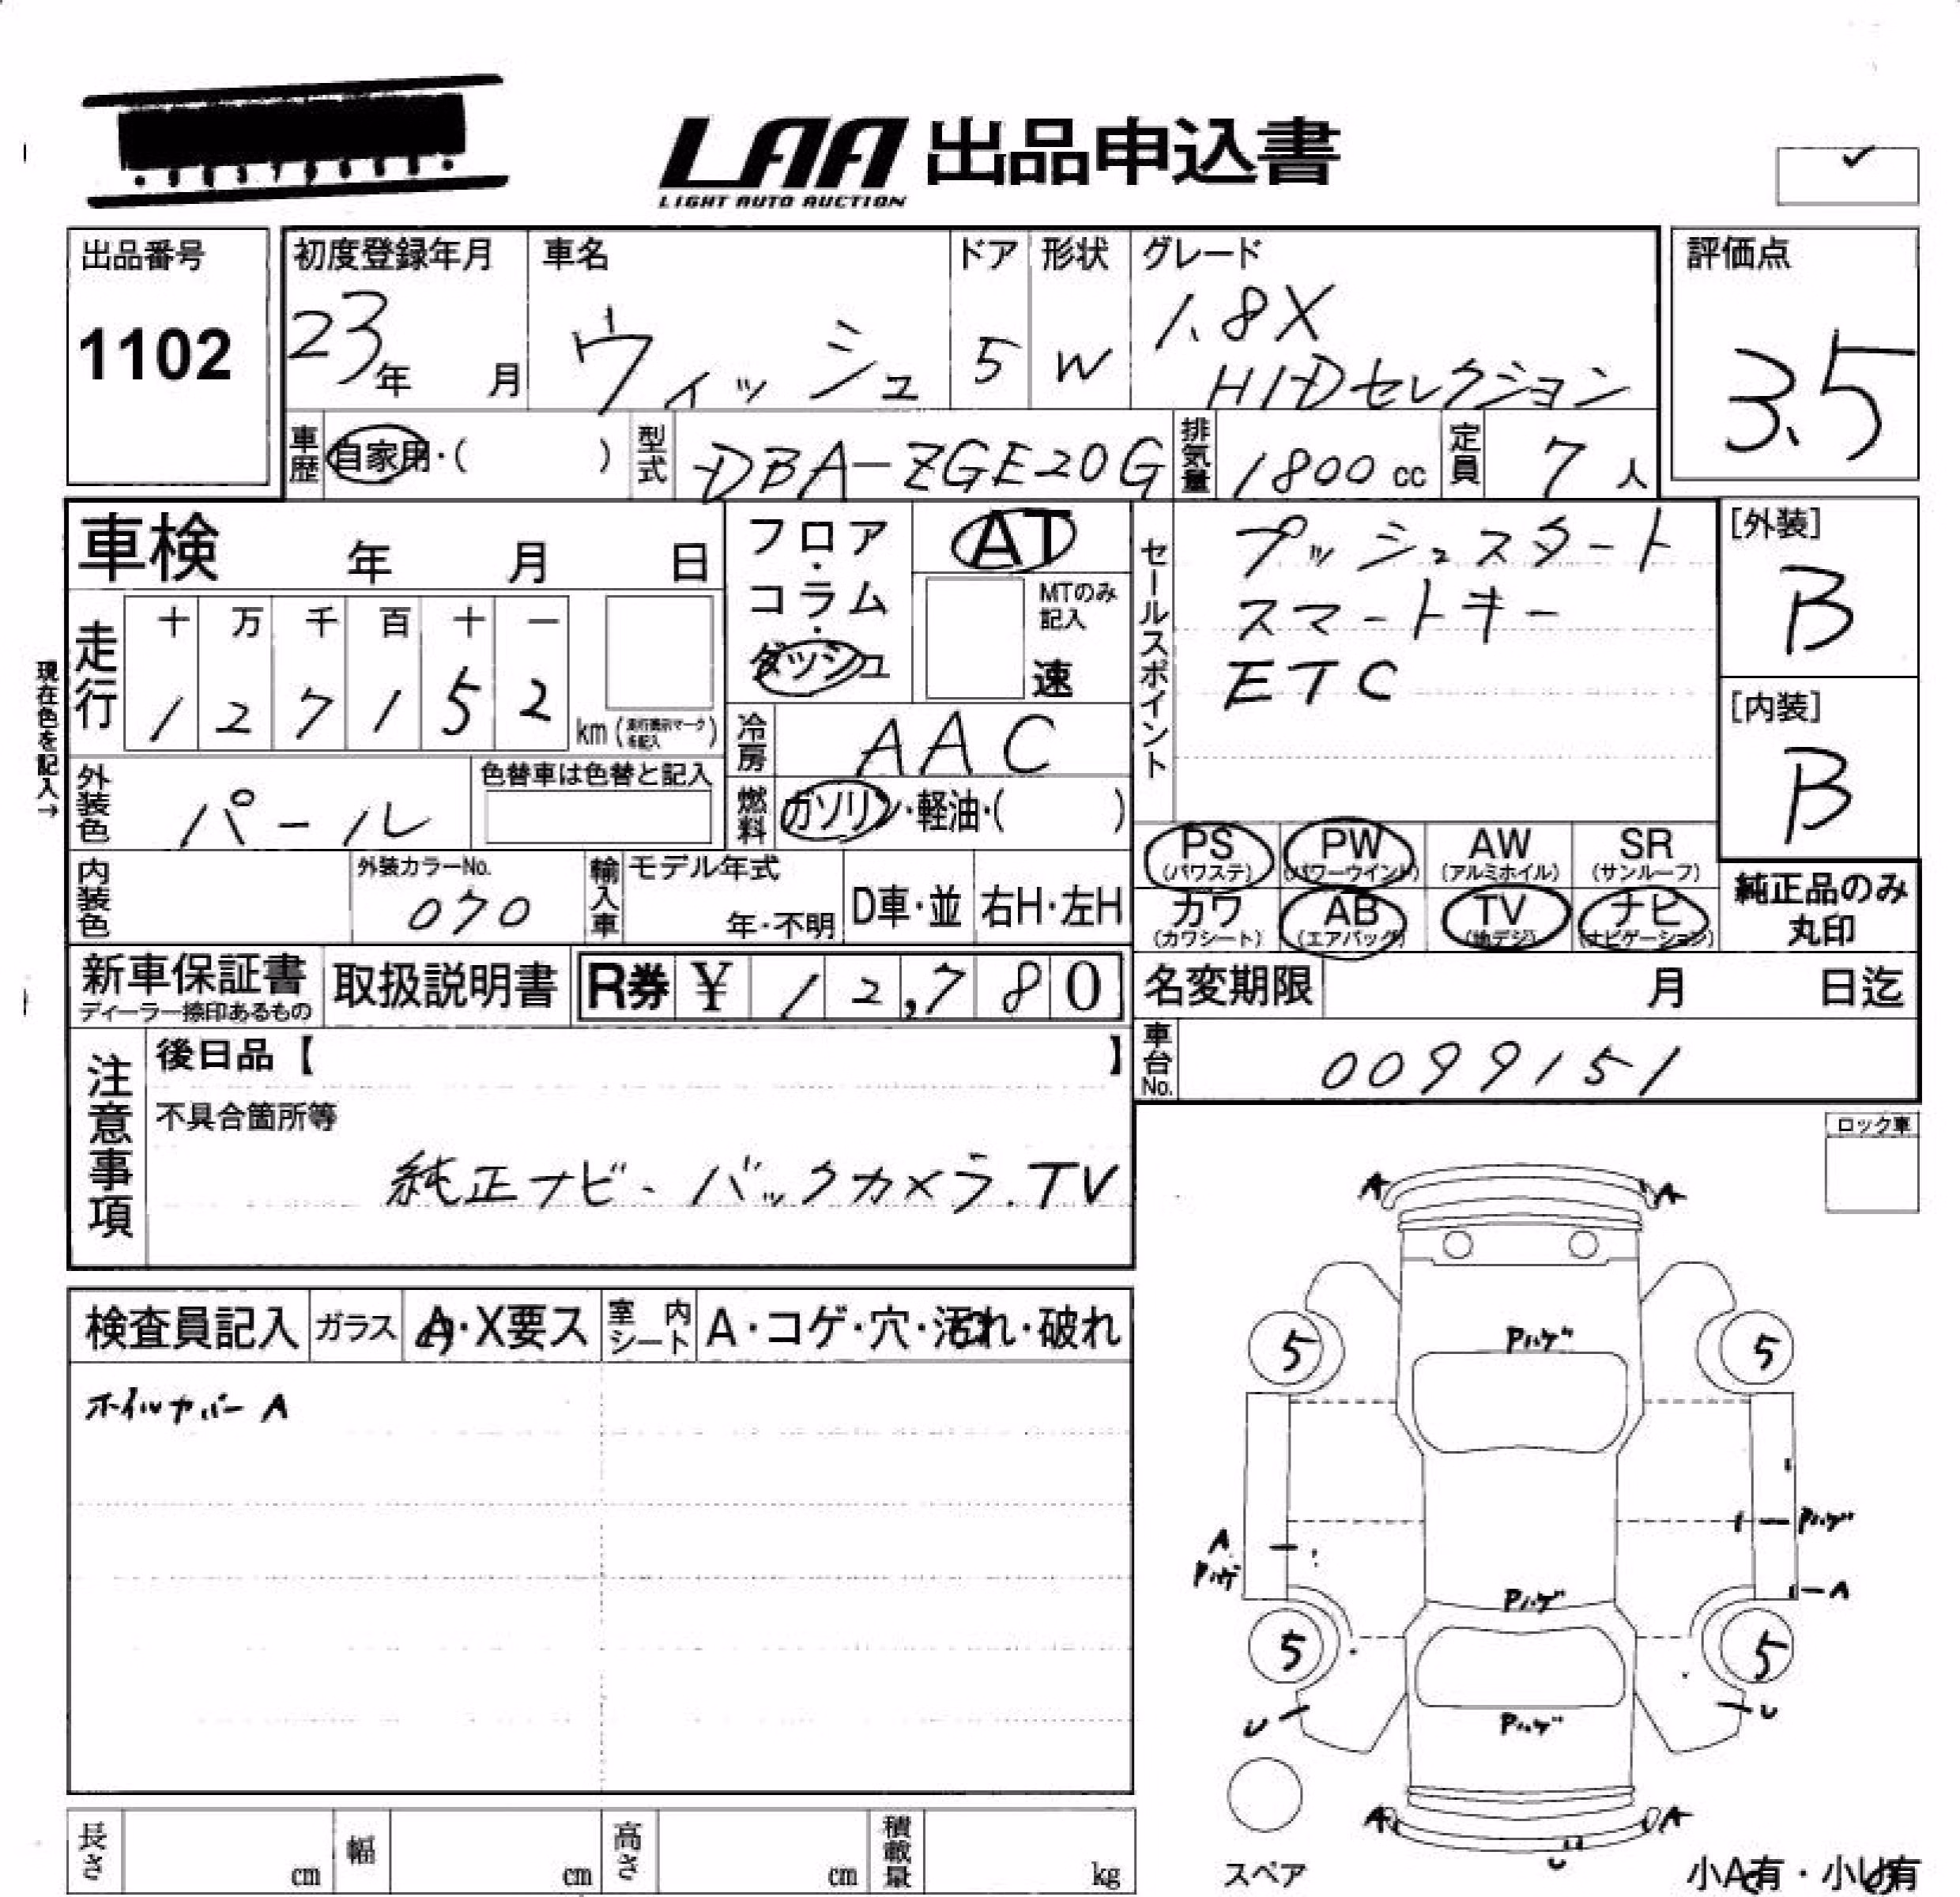 LAA 出品申込書
LIGHT AUTO AUCTION
出品番号
1102
初度登録年月
23年 月
車名
ウィッシュ
ドア
5
形状
W
グレード
1.8X
HIDセレクション
評価点
3.5
車歴 自家用・( )
型式 DBA-ZGE20G
排気量 1800 cc
定員 7 人
車検 年 月 日
走行
十 万 千 百 十 一
1 2 7 1 5 2
km (走行表示マークを記入)
現在色を記入→
外装色 パール
色替車は色替と記入
内装色
外装カラーNo.
070
フロア・コラム・ダッシュ
AT
MTのみ記入
速
冷房 AAC
燃料 ガソリン・軽油・( )
輸入車
モデル年式
年・不明
D車・並
右H・左H
セールスポイント
プッシュスタート
スマートキー
ETC
[外装]
B
[内装]
B
PS (パワステ)
PW (パワーウインド)
AW (アルミホイル)
SR (サンルーフ)
カワ (カワシート)
AB (エアバッグ)
TV (地デジ)
ナビ (ナビゲーション)
純正品のみ
丸印
新車保証書
ディーラー捺印あるもの
取扱説明書
R券 ¥ 12,780
名変期限 月 日迄
車台No. 0099151
注意事項
後日品【 】
不具合箇所等
純正ナビ、バックカメラ.TV
ロック車
検査員記入
ガラス A・X要ス
室内シート A・コゲ・穴・汚れ・破れ
ホイルカバー A
A A
Pハゲ
5 5
Pハゲ
A
Pハゲ
A
Pハゲ
5 5
U U
Pハゲ
A A
U
スペア
小A有・小U有
長さ cm
幅 cm
高さ cm
積載量 kg